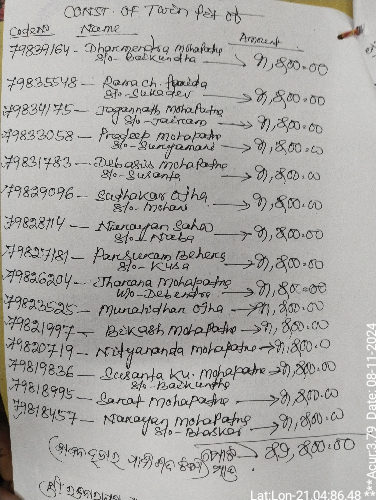 CONST. OF Twin Pit of
Code No Name Amount
79839164 - Dharmendra Mohapatra
S/o - Baikuntha → 9,800.00
79835548 - Rama ch. Parida
S/o - Sukadev → 9,800.00
79834175 - Jagannath Mohapatra
S/o - Jairam → 9,800.00
79833058 - Pradeep Mohapatra
S/o - → 9,800.00
79831783 - Debasis Mohapatra
S/o - Susanta → 9,800.00
79829096 - Sudhakar Ojha
S/o - Mohan → 9,800.00
79828114 - Narayan Sahoo
S/o - → 9,800.00
79827181 - Parsuram Behera
S/o - Kusa → 9,800.00
79826204 - Jharana Mohapatra
W/o - Debendra → 9,800.00
79823525 - Muralidhar Ojha → 9,800.00
79821997 - Bikash Mohapatra → 9,800.00
79820719 - Nityananda Mohapatra → 9,800.00
79819836 - Susanta Ku. Mohapatra → 9,800.00
S/o - Baikuntha
79818995 - Sarat Mohapatra → 9,800.00
79818457 - Narayan Mohapatra
S/o - Bhaskar → 9,800.00
Lat:Lon-21.04:86.48
**Acur:3.79 Date:08-11-2024